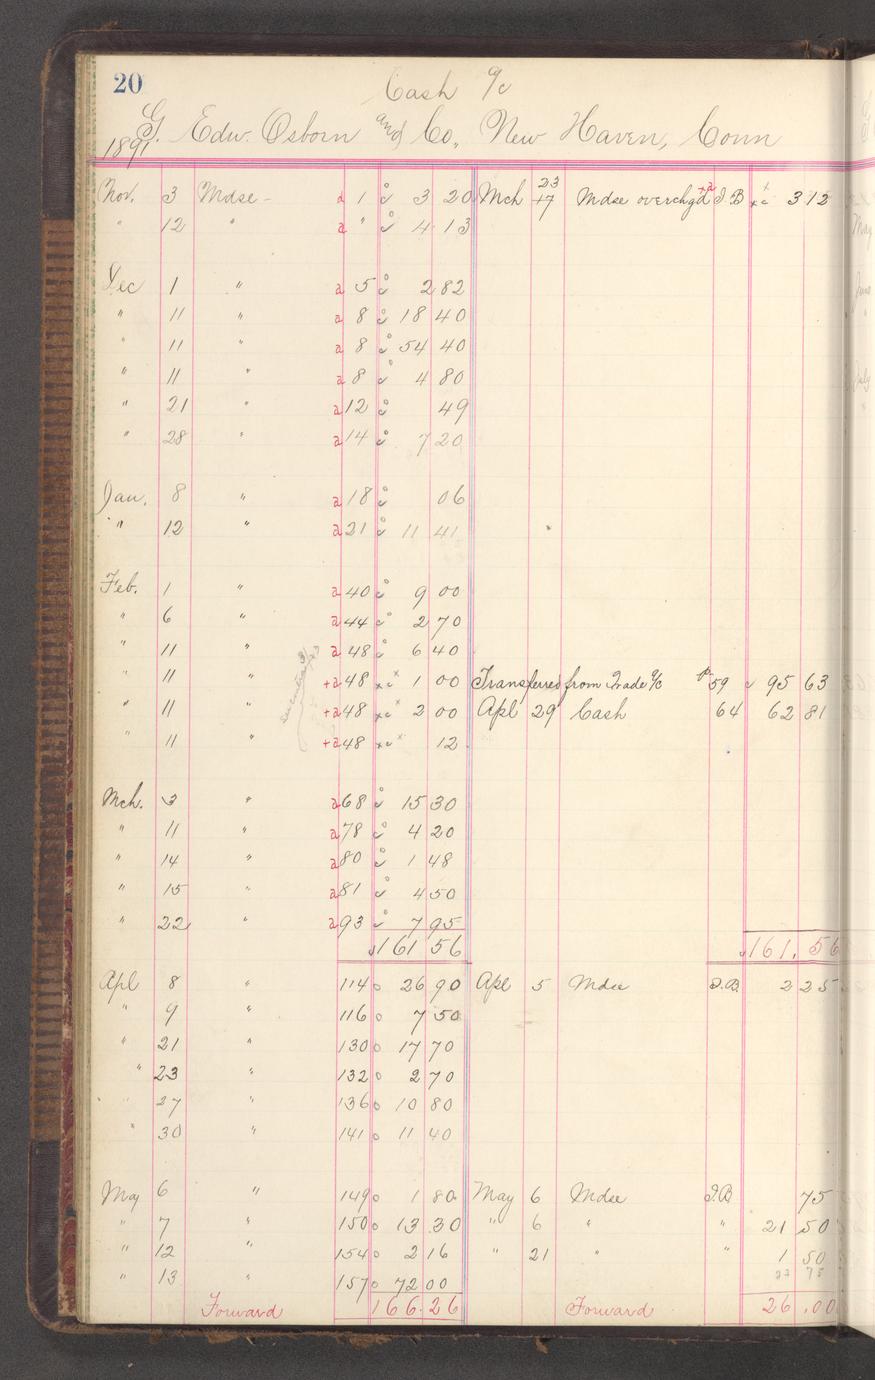 20
Cash a/c
G. Edw. Osborn and Co., New Haven, Conn
1891
Nov. 3 Mdse - a 1 3 20 Mch 23 17 Mdse overchgd +a I.B 3 12
" 12 " a " 4 13
Dec 1 " a 5 2 82
" 11 " a 8 18 40
" 11 " a 8 54 40
" 11 " a 8 4 80
" 21 " a 12 49
" 28 " a 14 7 20
Jan. 8 " a 18 06
" 12 " a 21 11 41
Feb. 1 " a 40 9 00
" 6 " a 44 2 70
" 11 " a 48 6 40
" 11 " +a 48 1 00 Transferred from Trade a/c p. 59 95 63
" 11 " +a 48 2 00 Apl 29 Cash 64 62 81
" 11 " +a 48 12
Mch. 3 " a 68 15 30
" 11 " a 78 4 20
" 14 " a 80 1 48
" 15 " a 81 4 50
" 22 " a 93 7 95
161 56 161. 56
Apl 8 " 114 26 90 Apl 5 Mdse I.B. 2 25
" 9 " 116 7 50
" 21 " 130 17 70
" 23 " 132 2 70
" 27 " 136 10 80
" 30 " 141 11 40
May 6 " 149 1 80 May 6 Mdse I.B 75
" 7 " 150 13 30 " 6 " " 21 50
" 12 " 154 2 16 " 21 " " 1 50
" 13 " 157 72 00 23 75
Forward 166.26 Forward 26.00